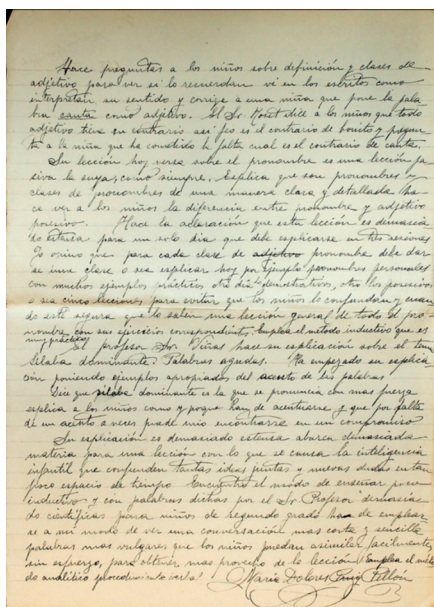 Hace preguntas a los niños sobre definición y clases de
adjetivo para ver si lo recuerdan vé en los escritos como
interpretan su sentido y corrige a una niña que pone la pala
bra canta como adjetivo. El Sr. dice a los niños que todo
adjetivo tiene su contrario así feo es el contrario de bonito y pregun
ta a la niña que ha cometido la falta cual es el contrario de canta.
Su lección hoy versa sobre el pronombre es una lección pa
siva la suya como siempre. Explica que son pronombres y
clases de pronombres de una manera clara y detallada ha
ce ver a los niños la diferencia entre pronombre y adjetivo
posesivo. Hace la aclaración que esta lección es demasia
do extensa para un solo dia que debe explicarse en tres sesiones
Yo opino que para cada clase de adjetivo pronombre debe dar
se una clase o sea explicar hoy por ejemplo pronombres personales
con muchos ejemplos prácticos otro dia demostrativos, otro los posesivos
o sea cinco lecciones para evitar que los niños lo confundan y cuan
do esté segura que lo saben una lección general de todo el pro-
nombre con sus ejercicios correspondientes. Emplea el método inductivo que es
muy práctico
El profesor Sr. Viñas hace su explicación sobre el tema
Sílaba dominante Palabras agudas. Ha empezado su explica
ción poniendo ejemplos apropiados del acento de las palabras
Dice que sílaba dominante es la que se pronuncia con mas fuerza
explica a los niños como y porque han de acentuarse y que por falta
de un acento a veces puede uno encontrarse en un compromiso
Su explicación es demasiado extensa abarca demasiada
materia para una lección con lo que se causa la inteligencia
infantil que confunden tantas ideas juntas y nuevas dadas en tan
poco espacio de tiempo. Encuentro el modo de enseñar poco
inductivo y con palabras dichas por el Sr Profesor demasia
do científicas para niños de segundo grado ha de emplear
se a mi modo de ver una conversación mas corta y sencilla
palabras mas vulgares que los niños puedan asimilar facilmente
sin esfuerzo, para obtener mas provecho de la lección. Emplea el méto
do analítico procedimiento verbal
Maria Dolores Puig